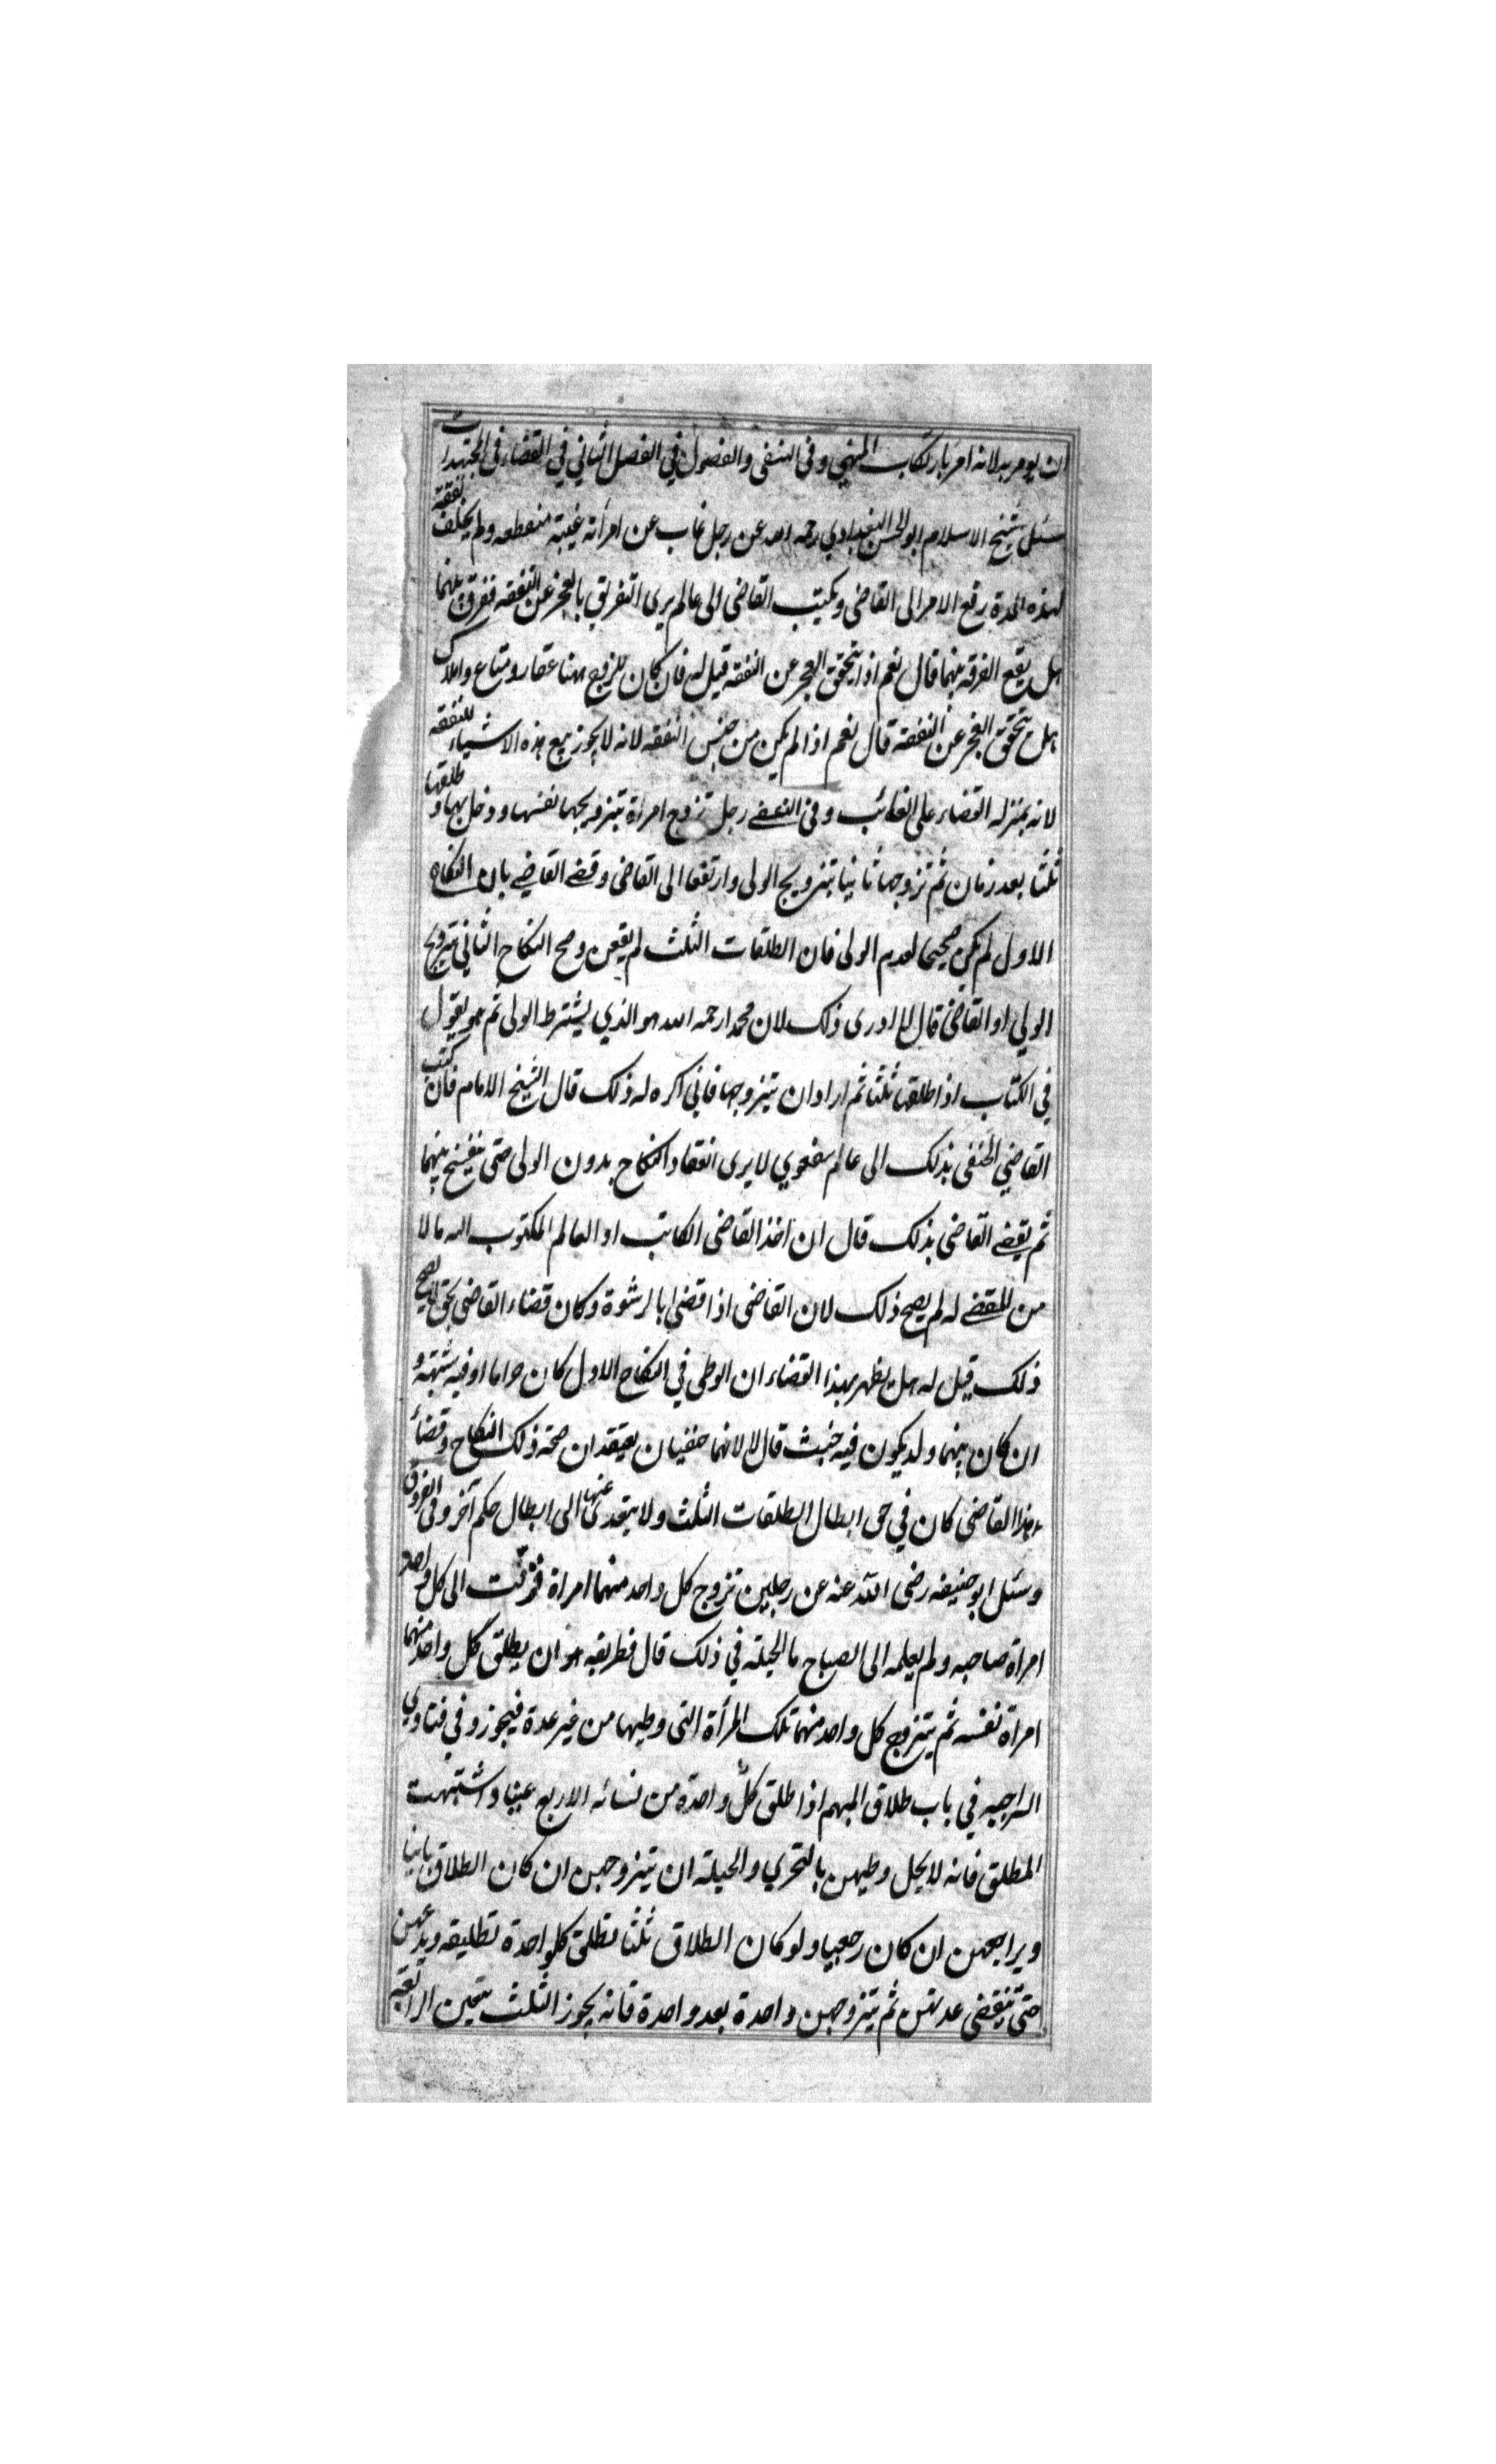 ان يومر به لانه امر بارتكاب المنهي وفي النسفى والفصول في الفصل الثاني في القضاء فى المجتهدات
سئل شيخ الاسلام ابو الحسن البغدادي رحمه الله عن رجل غاب عن امرأته غيبة منقطعه ولم يخلف نفقة
لهذه المدة رفع الامر الى القاضى ويكتب القاضى الى عالم يرى التفريق بالعجز عن النفقه ففرق بينهما
هل يقع الفرقه بينهما قال نعم اذا تحقق العجز عن النفقه قيل له فان كان للزوج ههنا عقار ومتاع واملاك
هل تحقق العجز عن النفقه قال نعم اذا لم يكن من جنس النفقه لانه لا يجوز بيع هذه الاشياء للنفقه
لانه بمنزله القضاء على الغائب وفى النسفى رجل تزوج امراة بتزويجها نفسها ودخل بها وطلقها
ثلثا بعد زمان ثم تزوجها ثانيا بتزويج الولى وارتفعا الى القاضى وقضى القاضي بان النكاح
الاول لم يكن صحيحا لعدم الولى فان الطلقات الثلث لم يقعن وصح النكاح الثانى بتزويج
الولي او القاضى قال لا ادرى ذلك لان محمد ارحمه الله هو الذي يشترط الولى ثم هو يقول
في الكتاب اذا طلقها ثلثا ثم اراد ان يتزوجها فانى اكره له ذلك قال الشيخ الامام فان كتب
القاضي الحنفى بذلك الى عالم شفعوي لا يرى انعقاد النكاح بدون الولى حتى يفسخ بينهما
ثم يقضى القاضى بذلك قال ان اخذ القاضى الكاتب او العالم المكتوب اليه مالا
من المقضى له لم يصح ذلك لان القاضى اذا قضى بالرشوة وكان قضاء القاضى بحق لا يصح
ذلك قيل له هل يظهر بهذا القضاء ان الوطى في النكاح الاول كان حراما او فيه شبهة و
ان كان بينهما ولد يكون فيه خبث قال لا لانهما حنفيان يعتقدان صحة ذلك النكاح وقضاء
هذا القاضى كان في حق ابطال الطلقات الثلث ولا يتعدى عنها الى ابطال حكم آخر وفى الفروق
وسئل ابو حنيفه رضى الله عنه عن رجلين تزوج كل واحد منهما امراة فزفت الى كل واحد
امراة صاحبه ولم يعلمه الى الصباح ما الحيلة في ذلك قال فطريقه هو ان يطلق كل واحد منهما
امراة نفسه ثم يتزوج كل واحد منهما تلك المرأة التى وطيها من غير عدة فيجوز وفي فتاوي
السراجيه في باب طلاق المبهم اذا طلق كل واحدة من نسائه الاربع عينا واشتبهت
المطلق فانه لا يحل وطيهن بالتحري والحيلة ان يتزوجهن ان كان الطلاق باينا
ويراجعهن ان كان رجعيا ولو كان الطلاق ثلثا تطلق كل واحدة تطليقه ويدعهن
حتى تنقضى عدتهن ثم يتزوجهن واحدة بعد واحدة فانه يجوز الثلث يتعين الرابعة